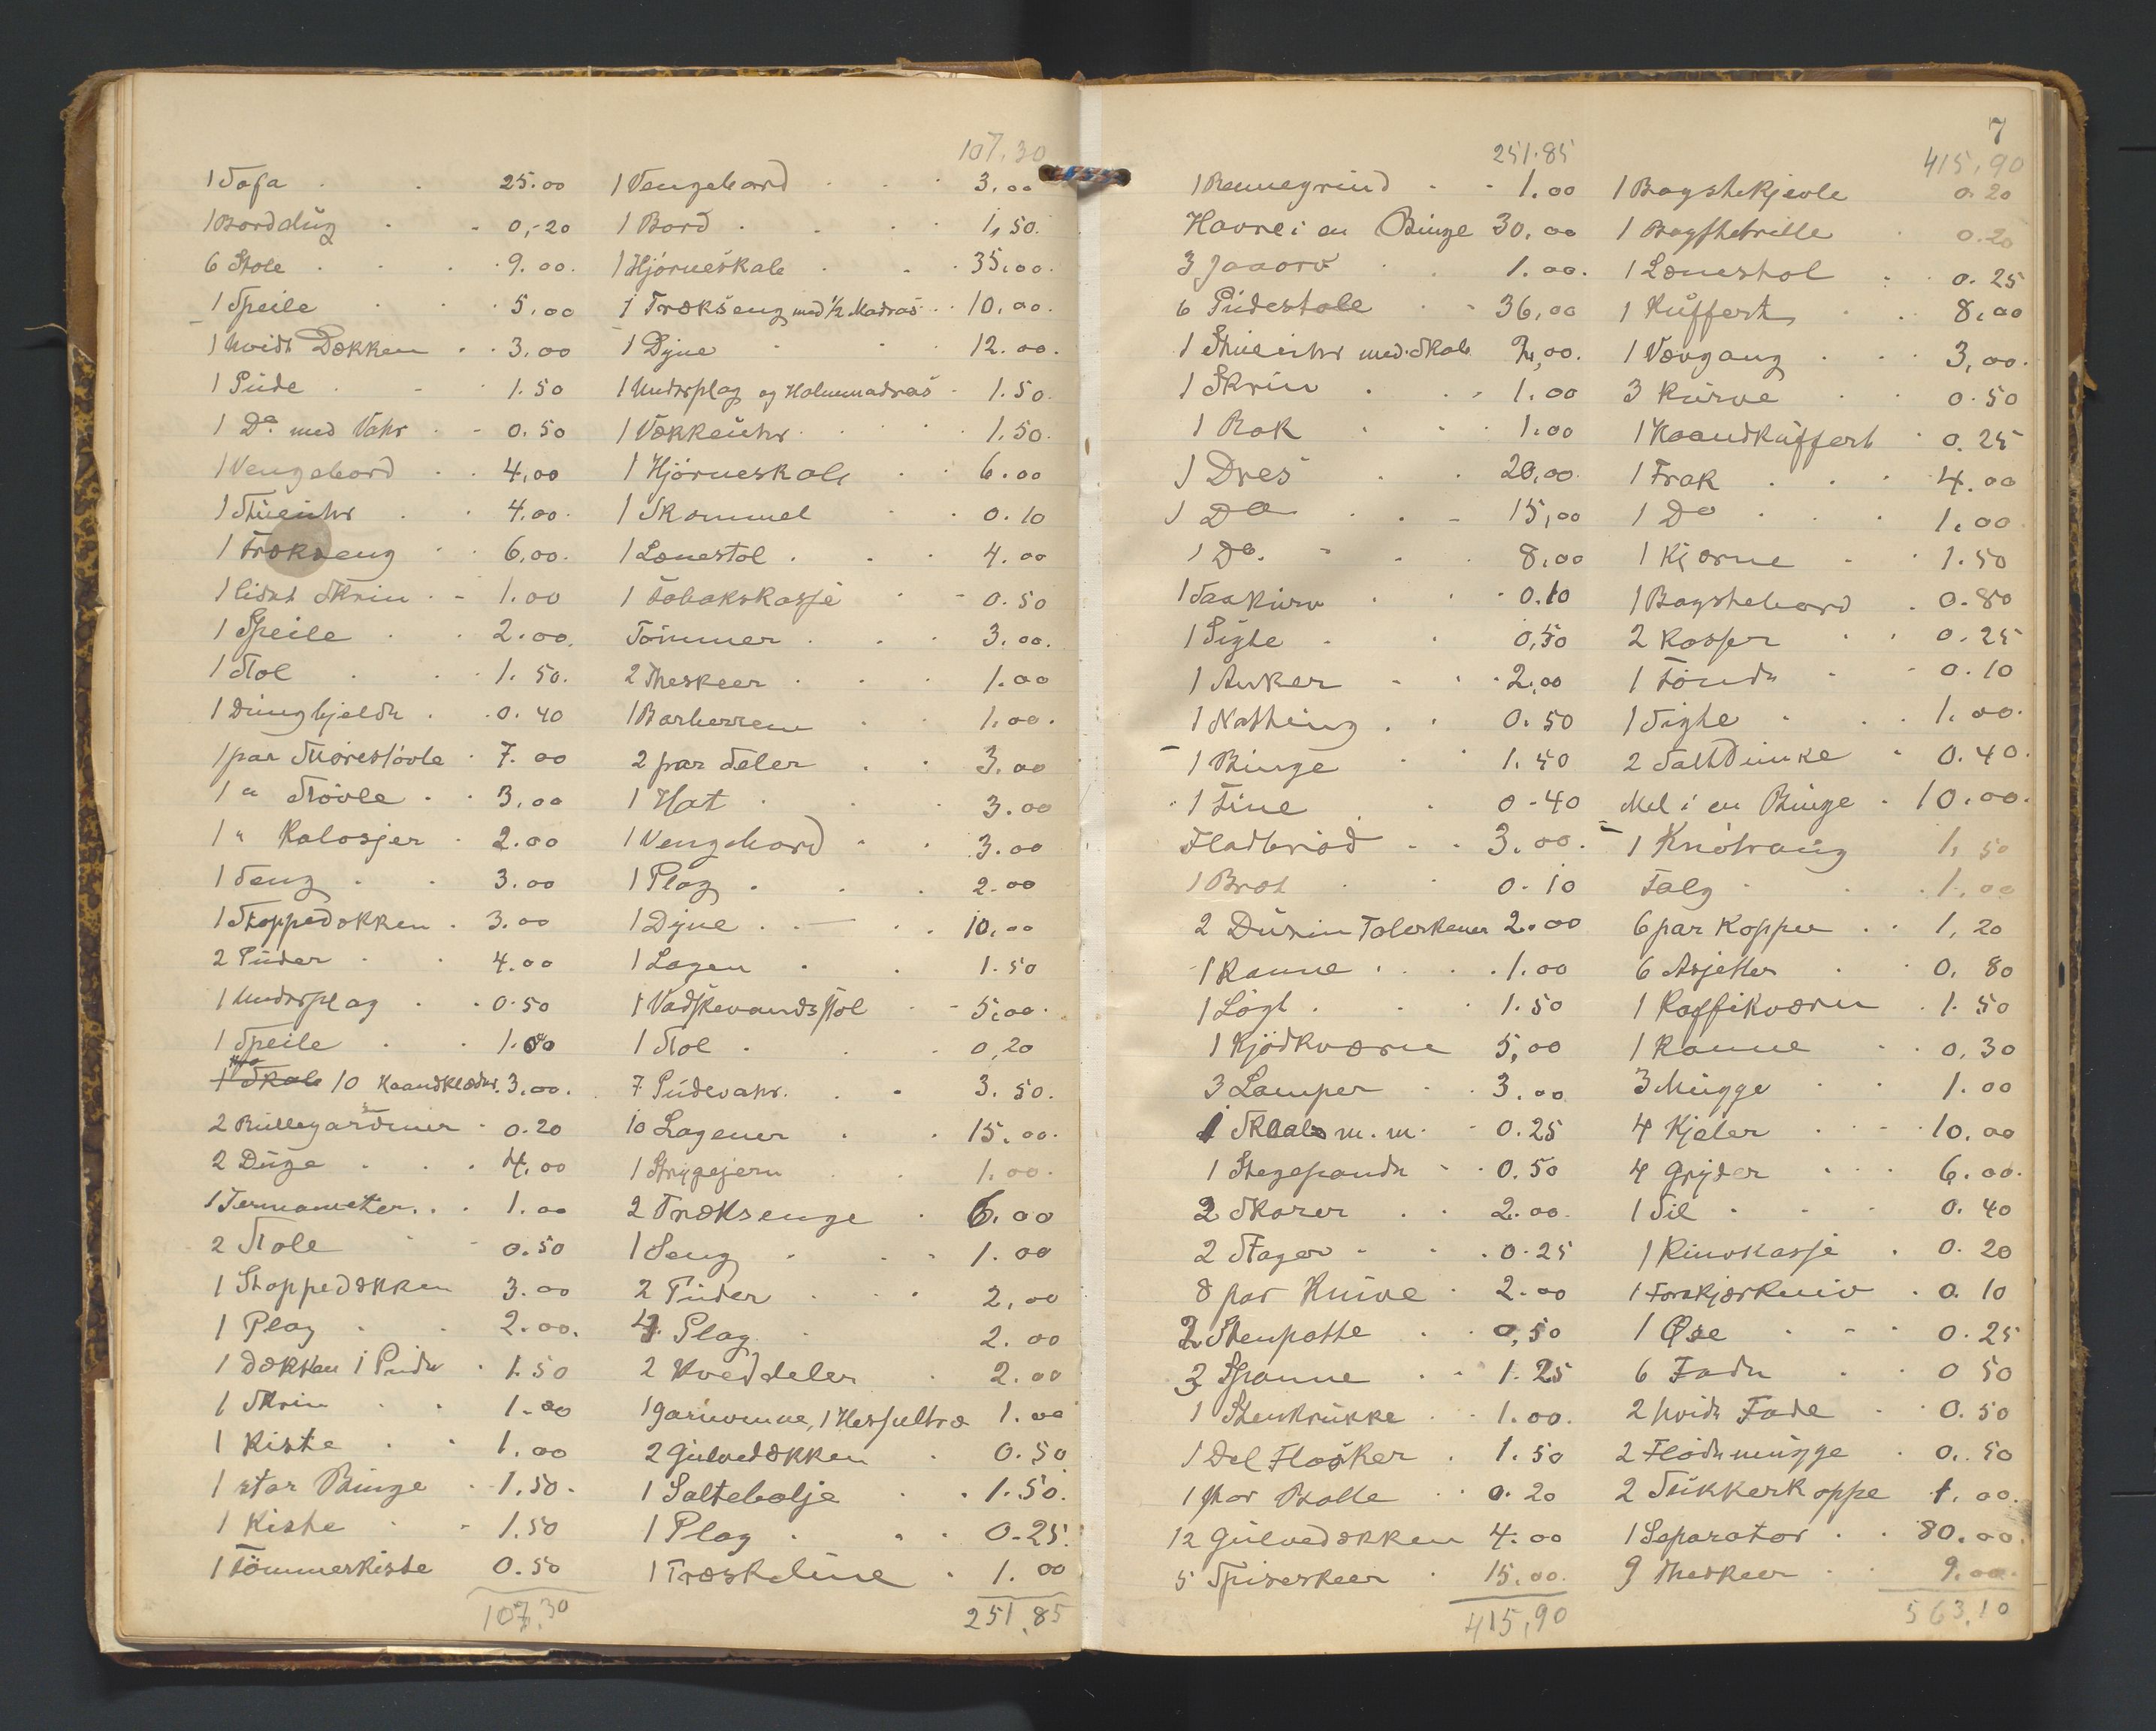 1 Sofa 25.00
1 Borddug 0,20
6 Stole 9.00.
1 Speile 5.00
1 hvidt Dækken 3.00
1 Pude 1.50
1 Do. med Vahr 0.50
1 Vengebord 4.00
1 Stueuhr 4.00
1 Trækseng 6.00.
1 lidet Skrin 1.00
1 Speile 2.00.
1 Stol 1.50.
1 Dungkjelde 0.40
1 par Skorestövle 7.00
1 " Stövle 3.00
1 " Kalosjer 2.00
1 Seng 3.00
1 Stoppedækken 3.00
2 Puder 4.00
1 Underplag 0.50
1 Speile 1.00
10 Haandklæder 3.00.
2 Rullegardiner 0.20
2 Duge 4.00
1 Termometer 1.00
2 Stole 0.50
1 Stoppedækken 3.00
1 Plag 2.00.
1 Dækken 1 Pude 1.50
1 Skrin 1.00
1 Kiste 1.00
1 stor Binge 1.50.
1 Kiste 1.50
1 Tömmerkiste 0.50
107,30
107,30
1 Vengebord 3.00
1 Bord 1,50.
1 Hjörneskab 35.00.
1 Trækseng med 1/2 Madras 10.00.
1 Dyne 12.00.
1 Underplag og Halmmadras 1.50.
1 Vækkeuhr 1.50.
1 Hjörneskab 6.00
1 Skammel 0.10
1 Lænestol 4.00
1 Tobakskasse 0.50
Tömmer 3.00.
2 Theskeer 1.00
1 Barberrem 1.00.
2 par Seler 3.00
1 Hat 3.00
1 Vengebord 3.00
1 Plag 2.00
1 Dyne 10.00
1 Lagen 1.50
1 Vadskevandsstol 5.00.
1 Stol 0,20
7 Pudevahr 3.50.
10 Lagener 15.00.
1 Strygejern 1.00.
2 Træksenge 6.00
1 Seng 1.00
2 Puder 2,00
4 Plag 2.00
2 Hveddeler 2.00
1 Garnvinne, 1 Hespeltræ 1.00
2 Gulvedækken 0.50
1 Saltebalje 1.50.
1 Plag 0.25.
1 Træskline 1.00
251,85
7
251.85
1 Rennegrind 1.00
Havre i en Binge 30.00
3 Jaaorv 1.00.
6 Pudestole 36,00
1 Stueuhr med Skab 2,00.
1 Skrin 1.00
1 Rok 1.00
1 Dres 20,00.
1 Do 15,00
1 Do. 8,00
1 Saakurv 0.10
1 Sigte 0,50
1 Anker 2,00
1 Nothing 0.50
1 Binge 1.50
1 Tine 0.40
Fladbröd 3.00.
1 Bræt 0.10
2 Dusin Talerkener 2.00
1 Kanne 1.00
1 Lögt 1.50
1 Kjödkværn 5,00
3 Lamper 3.00
1 Skaal m.m. 0.25
1 Stegepande 0.50
2 Skorer 2.00.
2 Stager 0.25
8 par Knive 2.00
2 Stenpotte 0,50
3 Spanne 1.25
1 Stenkrukke 1.00.
1 Del Flasker 1.50
1 par Balle 0.20
12 Gulvedækken 4.00
5 Spiseskeer 15.00.
415,90
415,90
1 Bagstekjevle 0.20
1 Bagstetrille 0.20
1 Lænestol 0.25
1 Kuffert 8,00
1 Vævgang 3,00.
3 Kurve 0.50
1 Haandkuffert 0.25
1 Frak 4.00
1 Do 1.00
1 Kjærne 1.50
1 Bagstebord 0.80
2 Kasser 0.25
1 Tönde 0.10
1 Sigte 1.00.
2 Saltdunke 0.40.
Mel i en Binge 10.00.
1 Knötraug 1,50
Talg 1.00
6 par Kopper 1,20
6 Asjetter 0.80
1 Kaffikværn 1.50
1 Kanne 0.30
3 Mugge 1.00
4 Kjeler 10.00
4 Gryder 6.00.
1 Sil 0.40
1 Knivkasse 0.20
1 Forskjærkniv 0.10
1 Øse 0.25
6 Fade 0 50
2 hvide Fade 0.50
2 Flödemugge 0.50
2 Sukkerkoppe 1.00.
1 Separator 80.00.
9 Theskeer 9.00.
563,10